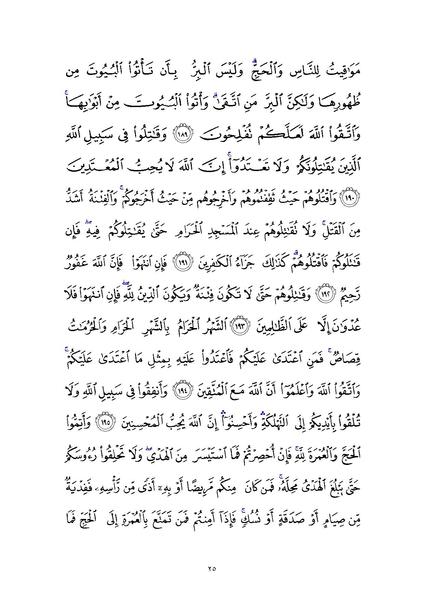 مَوَٰقِيتُ لِلنَّاسِ وَٱلۡحَجِّۗ وَلَيۡسَ ٱلۡبِرُّ بِأَن تَأۡتُواْ ٱلۡبُيُوتَ مِن
ظُهُورِهَا وَلَٰكِنَّ ٱلۡبِرَّ مَنِ ٱتَّقَىٰۗ وَأۡتُواْ ٱلۡبُيُوتَ مِنۡ أَبۡوَٰبِهَاۚ
وَٱتَّقُواْ ٱللَّهَ لَعَلَّكُمۡ تُفۡلِحُونَ ١٨٩ وَقَٰتِلُواْ فِي سَبِيلِ ٱللَّهِ
ٱلَّذِينَ يُقَٰتِلُونَكُمۡ وَلَا تَعۡتَدُوٓاْۚ إِنَّ ٱللَّهَ لَا يُحِبُّ ٱلۡمُعۡتَدِينَ
١٩٠ وَٱقۡتُلُوهُمۡ حَيۡثُ ثَقِفۡتُمُوهُمۡ وَأَخۡرِجُوهُم مِّنۡ حَيۡثُ أَخۡرَجُوكُمۡۚ وَٱلۡفِتۡنَةُ أَشَدُّ
مِنَ ٱلۡقَتۡلِۚ وَلَا تُقَٰتِلُوهُمۡ عِندَ ٱلۡمَسۡجِدِ ٱلۡحَرَامِ حَتَّىٰ يُقَٰتِلُوكُمۡ فِيهِۖ فَإِن
قَٰتَلُوكُمۡ فَٱقۡتُلُوهُمۡۗ كَذَٰلِكَ جَزَآءُ ٱلۡكَٰفِرِينَ ١٩١ فَإِنِ ٱنتَهَوۡاْ فَإِنَّ ٱللَّهَ غَفُورٞ
رَّحِيمٞ ١٩٢ وَقَٰتِلُوهُمۡ حَتَّىٰ لَا تَكُونَ فِتۡنَةٞ وَيَكُونَ ٱلدِّينُ لِلَّهِۖ فَإِنِ ٱنتَهَوۡاْ فَلَا
عُدۡوَٰنَ إِلَّا عَلَى ٱلظَّٰلِمِينَ ١٩٣ ٱلشَّهۡرُ ٱلۡحَرَامُ بِٱلشَّهۡرِ ٱلۡحَرَامِ وَٱلۡحُرُمَٰتُ
قِصَاصٞۚ فَمَنِ ٱعۡتَدَىٰ عَلَيۡكُمۡ فَٱعۡتَدُواْ عَلَيۡهِ بِمِثۡلِ مَا ٱعۡتَدَىٰ عَلَيۡكُمۡۚ
وَٱتَّقُواْ ٱللَّهَ وَٱعۡلَمُوٓاْ أَنَّ ٱللَّهَ مَعَ ٱلۡمُتَّقِينَ ١٩٤ وَأَنفِقُواْ فِي سَبِيلِ ٱللَّهِ وَلَا
تُلۡقُواْ بِأَيۡدِيكُمۡ إِلَى ٱلتَّهۡلُكَةِ وَأَحۡسِنُوٓاْۚ إِنَّ ٱللَّهَ يُحِبُّ ٱلۡمُحۡسِنِينَ ١٩٥ وَأَتِمُّواْ
ٱلۡحَجَّ وَٱلۡعُمۡرَةَ لِلَّهِۚ فَإِنۡ أُحۡصِرۡتُمۡ فَمَا ٱسۡتَيۡسَرَ مِنَ ٱلۡهَدۡيِۖ وَلَا تَحۡلِقُواْ رُءُوسَكُمۡ
حَتَّىٰ يَبۡلُغَ ٱلۡهَدۡيُ مَحِلَّهُۥۚ فَمَن كَانَ مِنكُم مَّرِيضًا أَوۡ بِهِۦٓ أَذٗى مِّن رَّأۡسِهِۦ فَفِدۡيَةٞ
مِّن صِيَامٍ أَوۡ صَدَقَةٍ أَوۡ نُسُكٖۚ فَإِذَآ أَمِنتُمۡ فَمَن تَمَتَّعَ بِٱلۡعُمۡرَةِ إِلَى ٱلۡحَجِّ فَمَا
٢٥